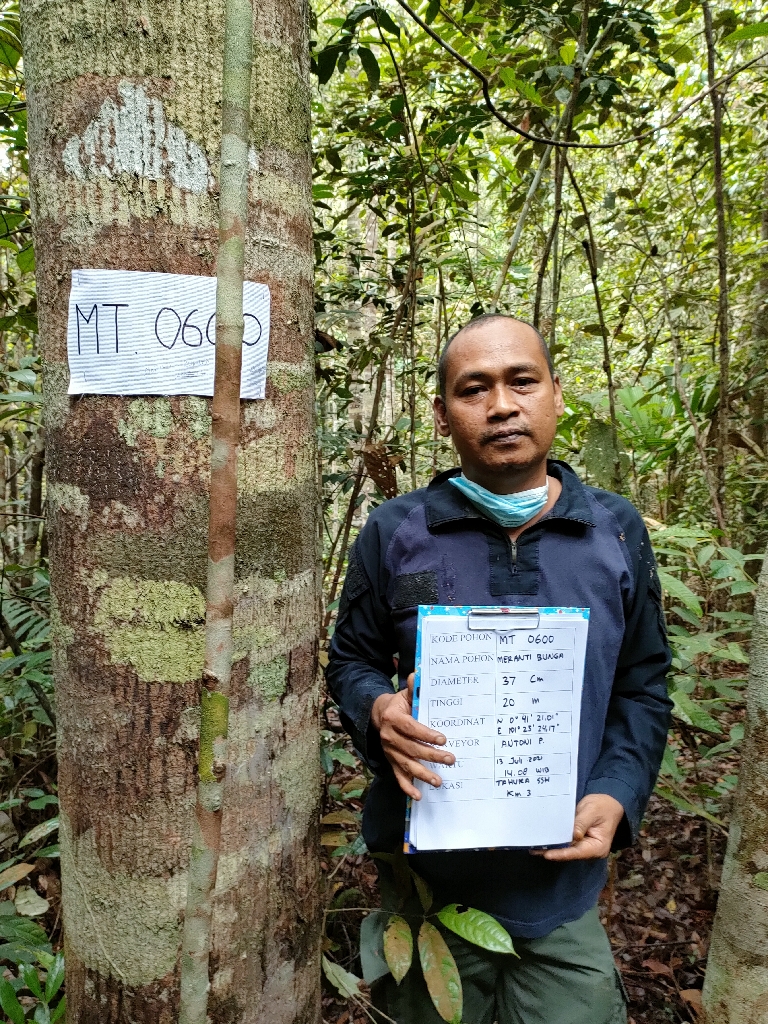 MT. 0600
KODE POHON MT 0600
NAMA POHON MERANTI BUNGA
DIAMETER 37 Cm
TINGGI 20 m
KOORDINAT N 0° 41' 21.01"
E 101° 25' 24.17"
ANTONI P.
13 Juli 2021
14.08 WIB
TAHURA SSH
Km 3